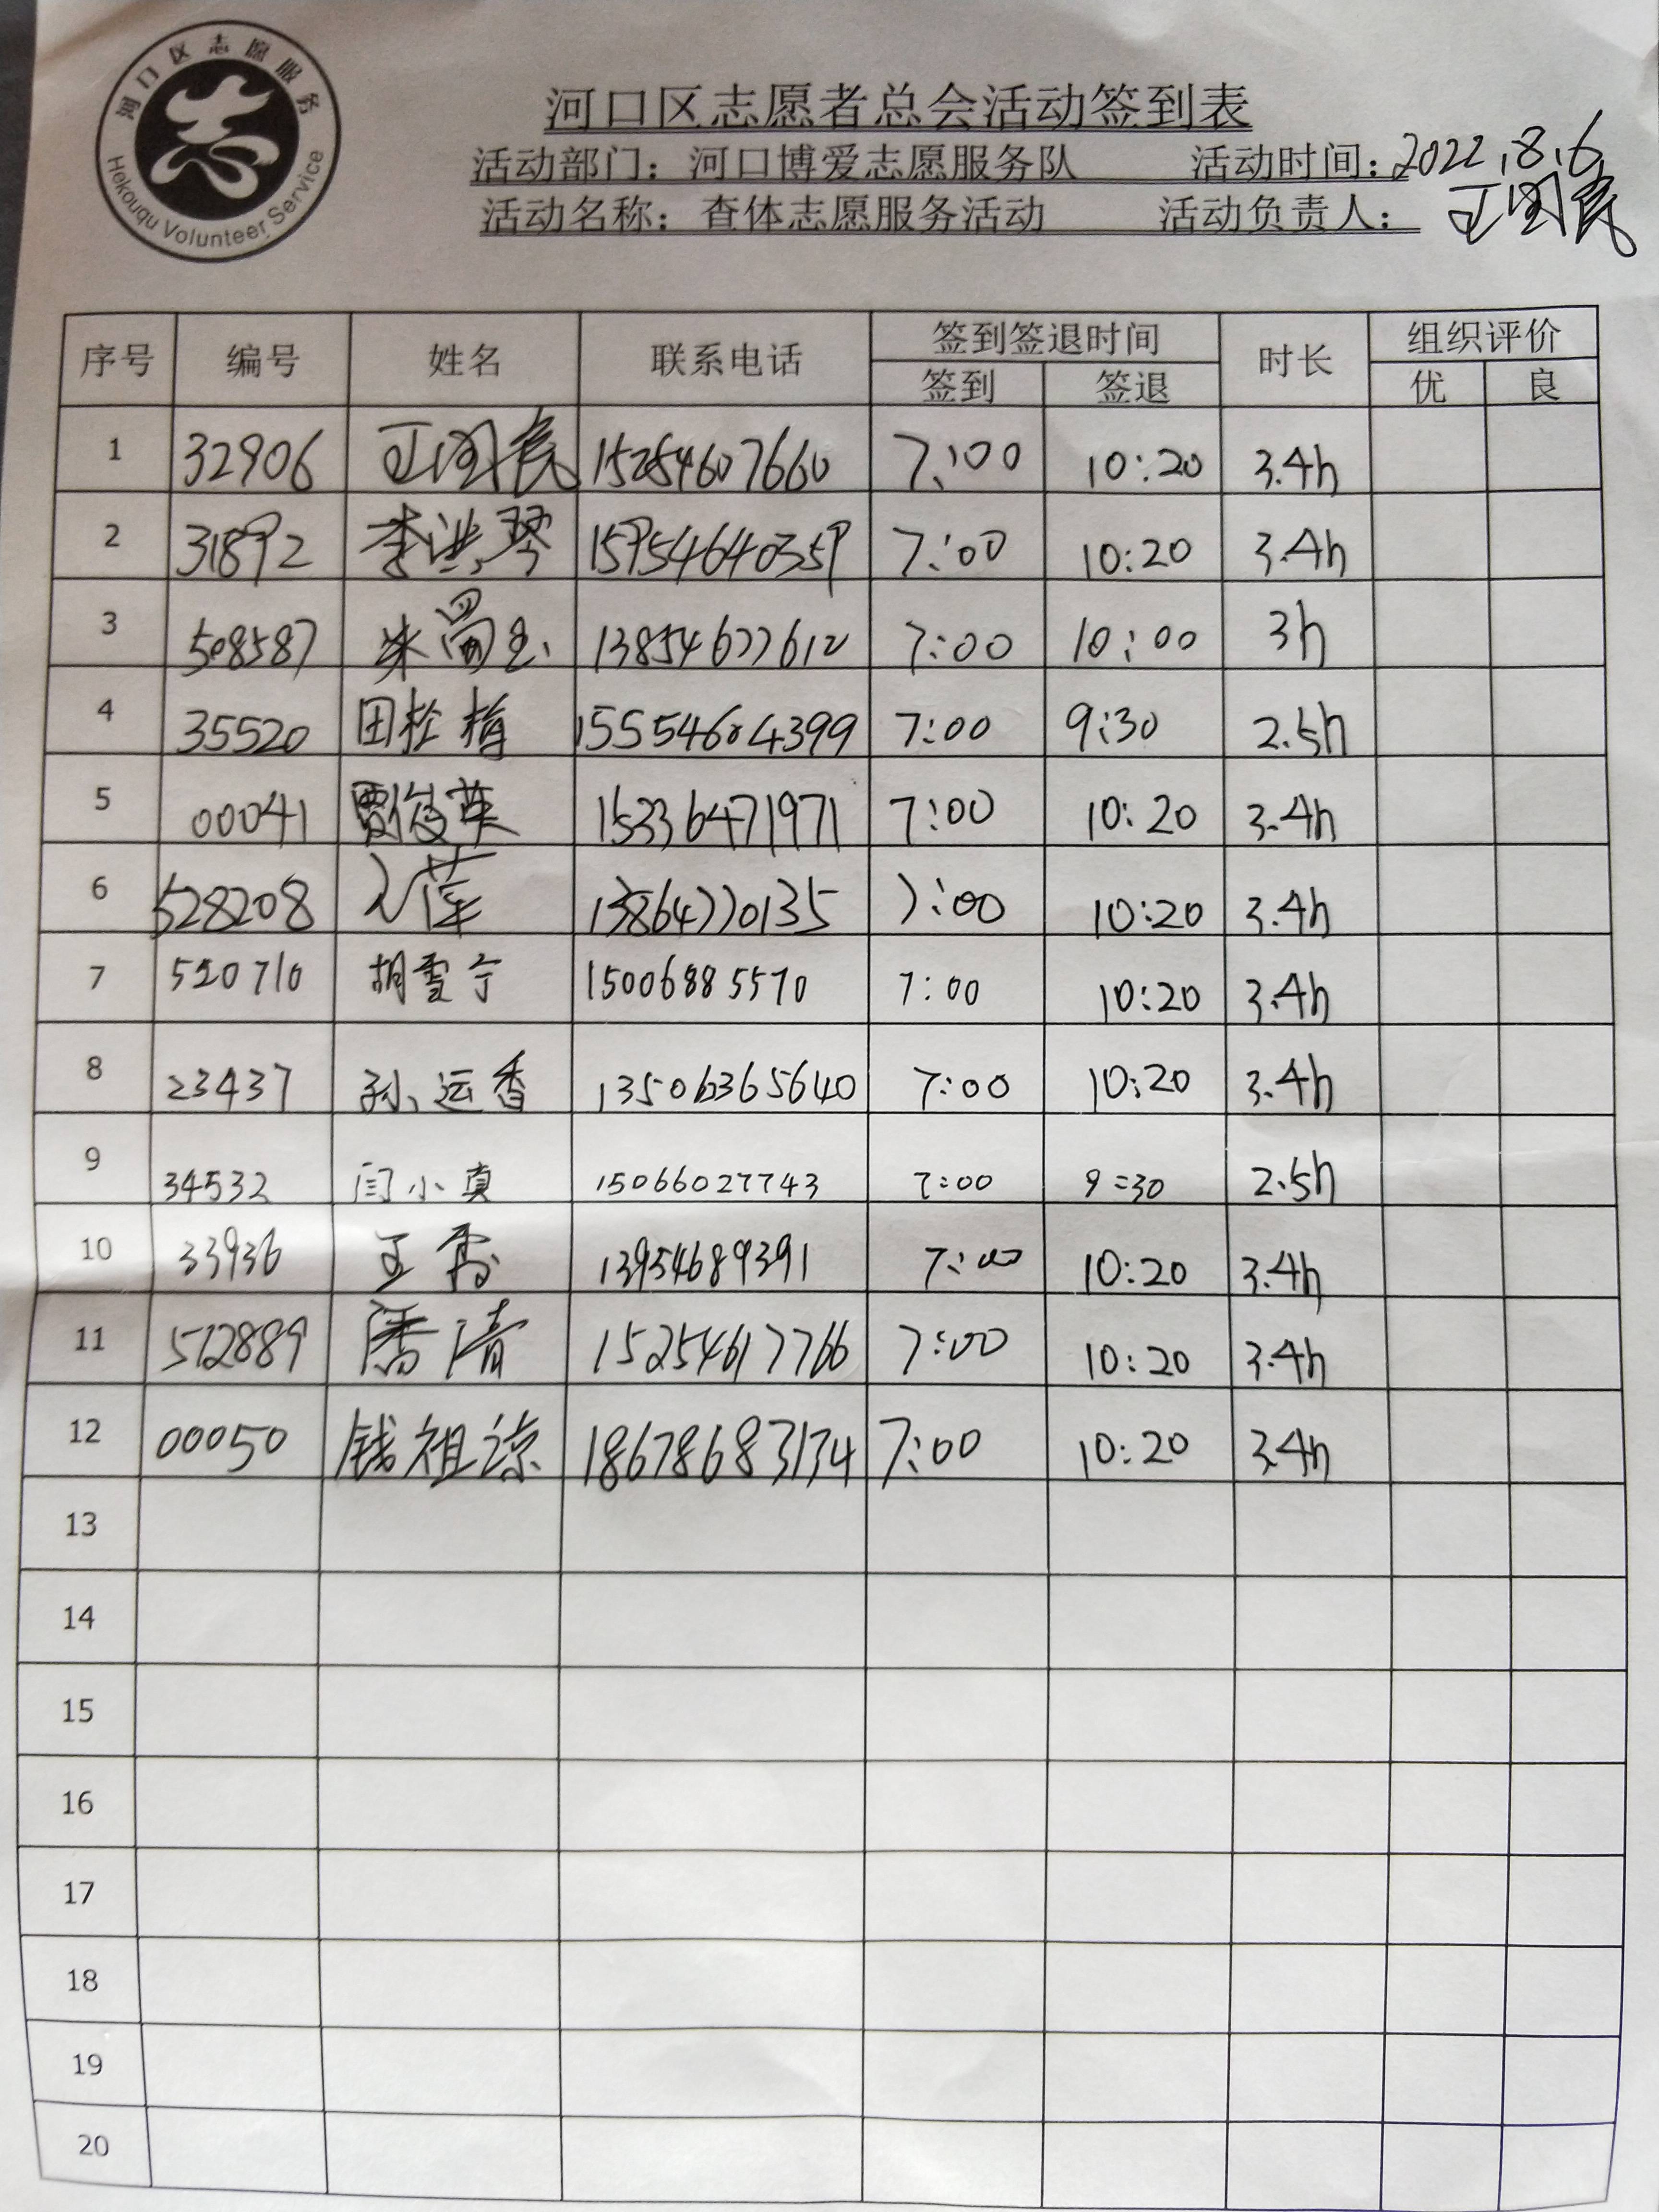 河口区志愿服务
Hekouqu Volunteer Service
河口区志愿者总会活动签到表
活动部门：河口博爱志愿服务队 活动时间：2022.8.6
活动名称：查体志愿服务活动 活动负责人：
序号 编号 姓名 联系电话 签到签退时间 时长 组织评价
签到 签退 优 良
1 32906 15254607660 7:00 10:20 3.4h
2 31892 李洪琴 15954640359 7:00 10:20 3.4h
3 508587 13854677612 7:00 10:00 3h
4 35520 15554604399 7:00 9:30 2.5h
5 00041 贾俊英 15336471971 7:00 10:20 3.4h
6 528208 13864770135 7:00 10:20 3.4h
7 520710 胡雪宁 15006885570 7:00 10:20 3.4h
8 23437 孙运香 13506365640 7:00 10:20 3.4h
9 34532 闫小真 15066027743 7:00 9:30 2.5h
10 33936 王霞 13954689391 7:00 10:20 3.4h
11 512889 潘清 15254617766 7:00 10:20 3.4h
12 00050 钱祖谅 18678683134 7:00 10:20 3.4h
13
14
15
16
17
18
19
20